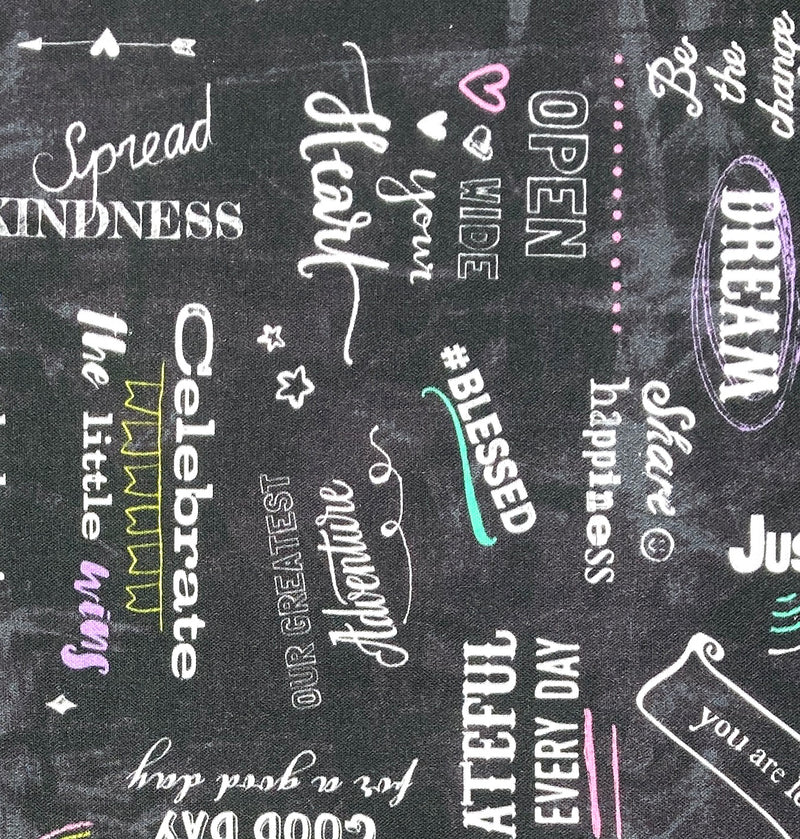 Spread
KINDNESS
OPEN
WIDE
your
Heart
Be
the
change
DREAM
Celebrate
the little wins
#BLESSED
Share
happiness
OUR GREATEST
Adventure
JUS
ATEFUL
EVERY DAY
you are
GOOD DAY
for a good day